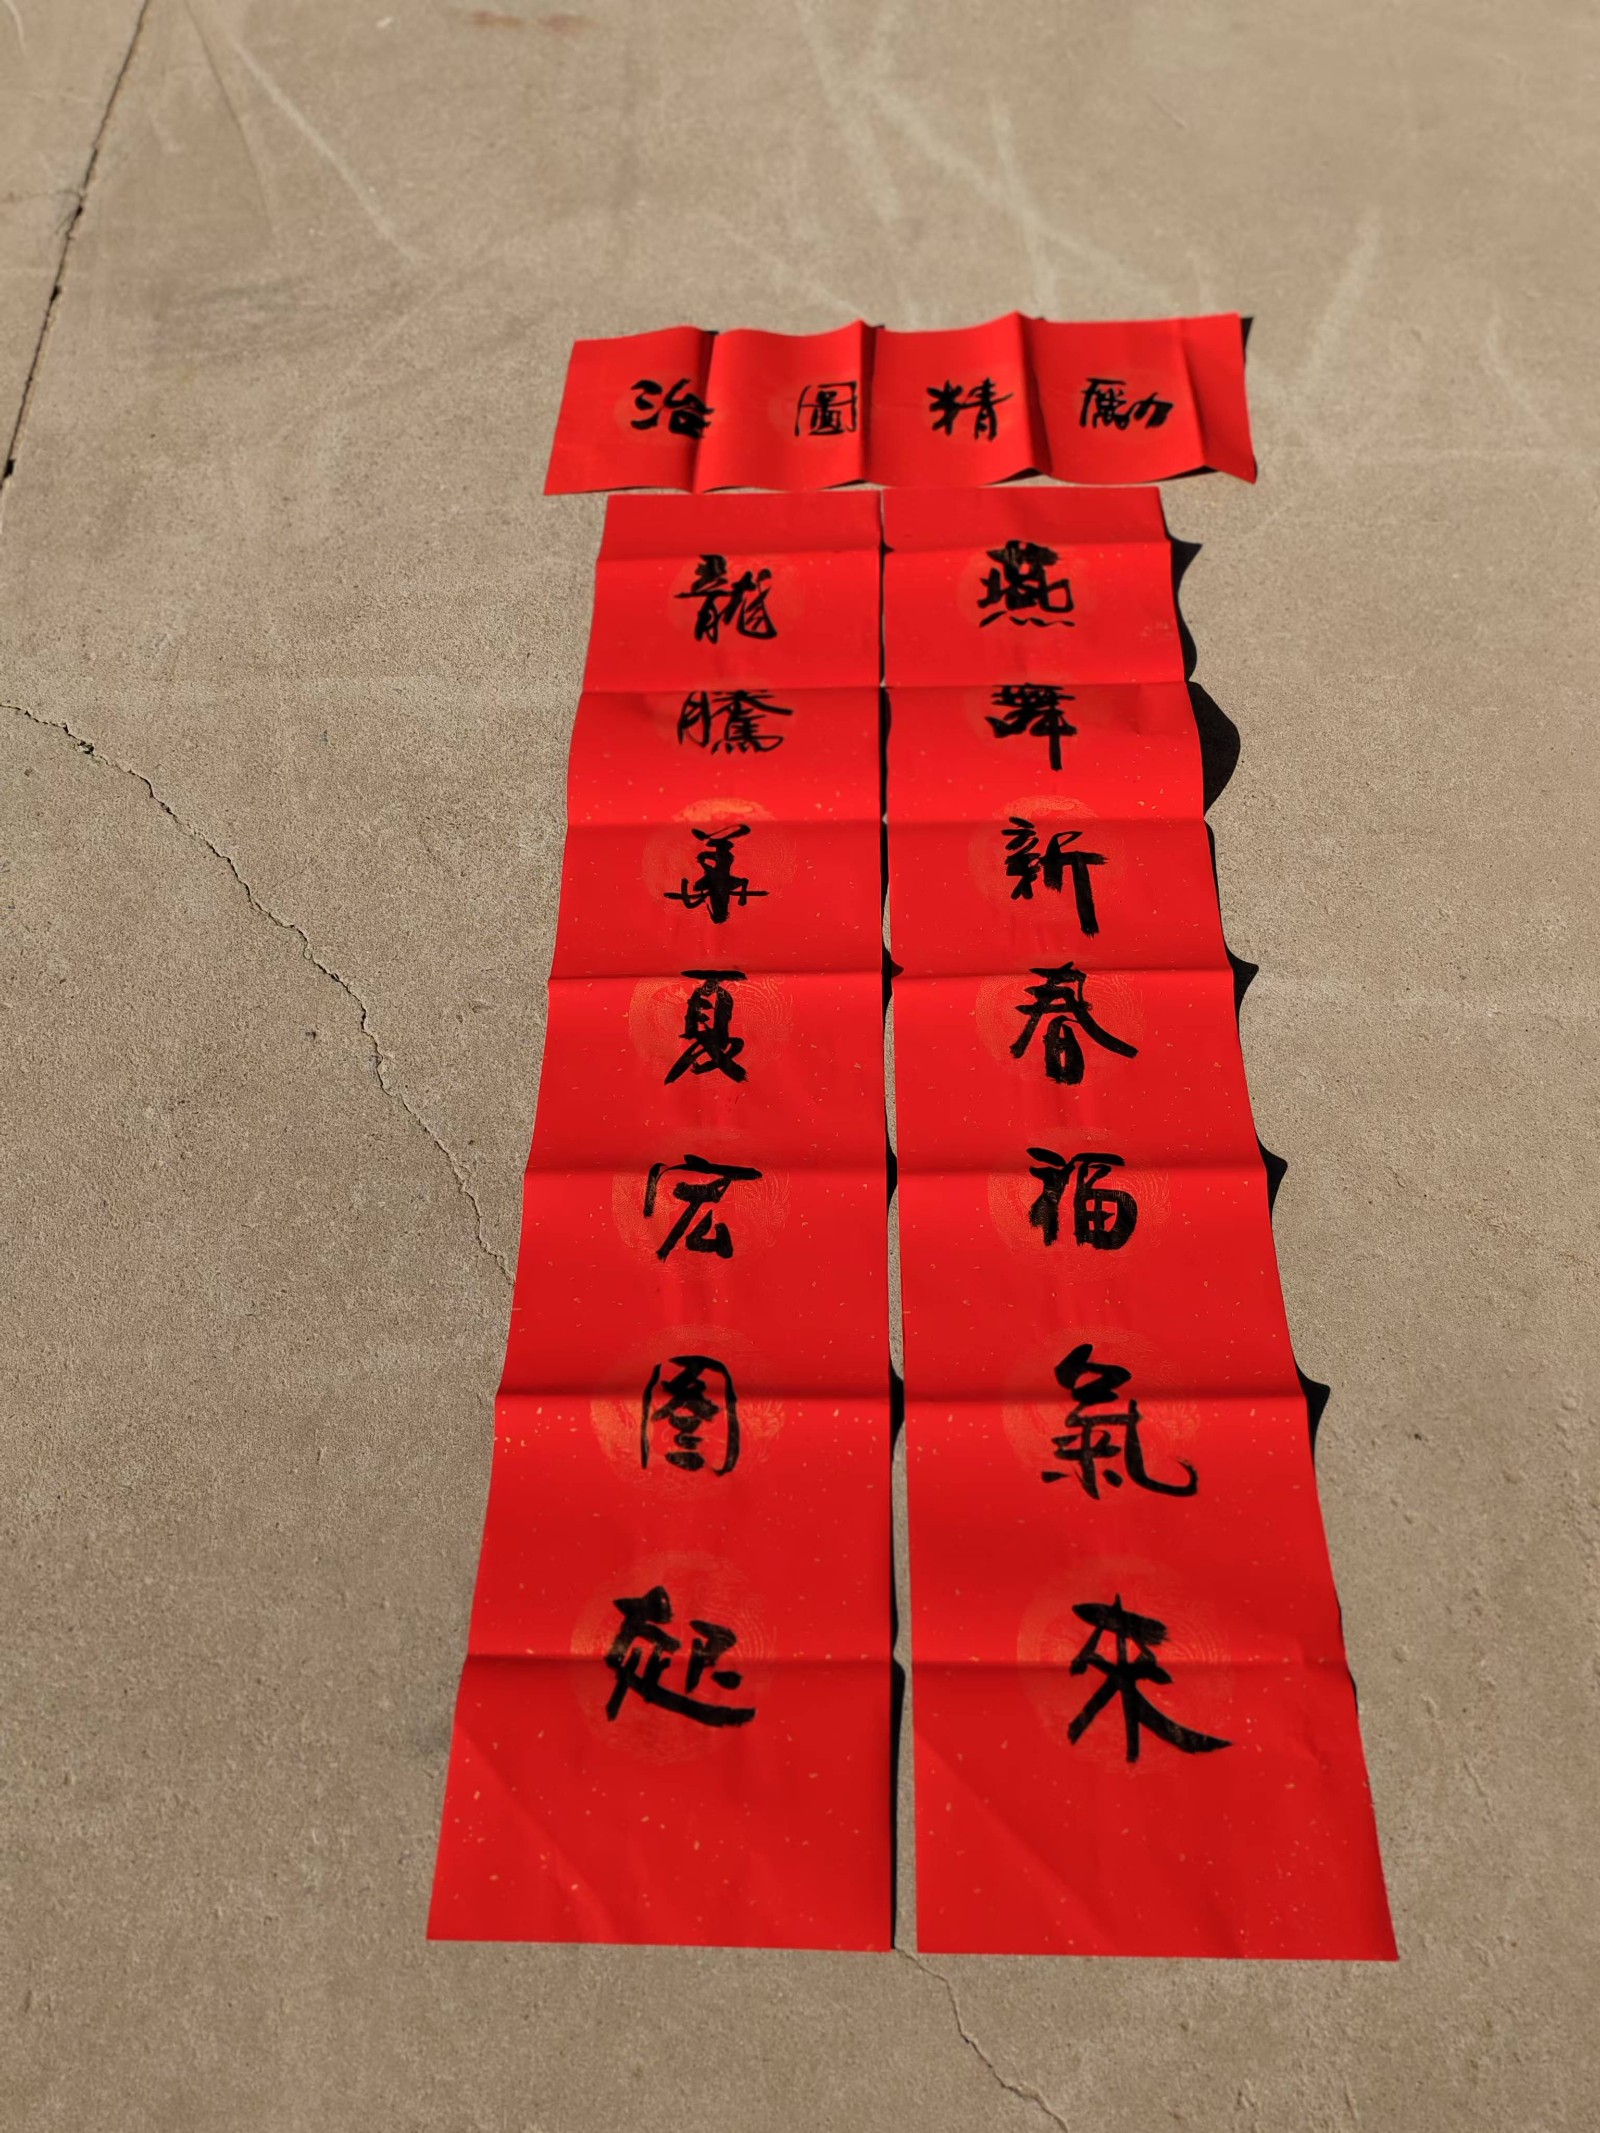 勵精圖治
燕舞新春福氣來
龍騰華夏宏图起